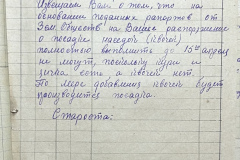 Извещаем Вам о том, что на
основании поданных рапортов от
Зем. Обществ на Ваше распоряжение
о посадке наседок (квочек)
полностью выполнить до 15го апреля
не могут, поскольку куры и
яички есть а квочек нет.
По мере добавления квочек будет
производится посадка.
Староста: